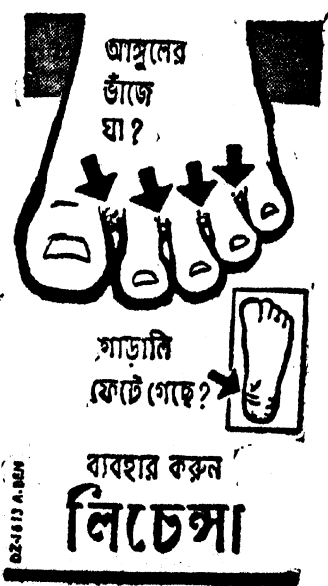 আঙ্গুলের
ভাঁজে
ঘা?
গোড়ালি
ফেটে গেছে?
ব্যবহার করুন
লিচেন্সা
DZ-1613 A.BEN